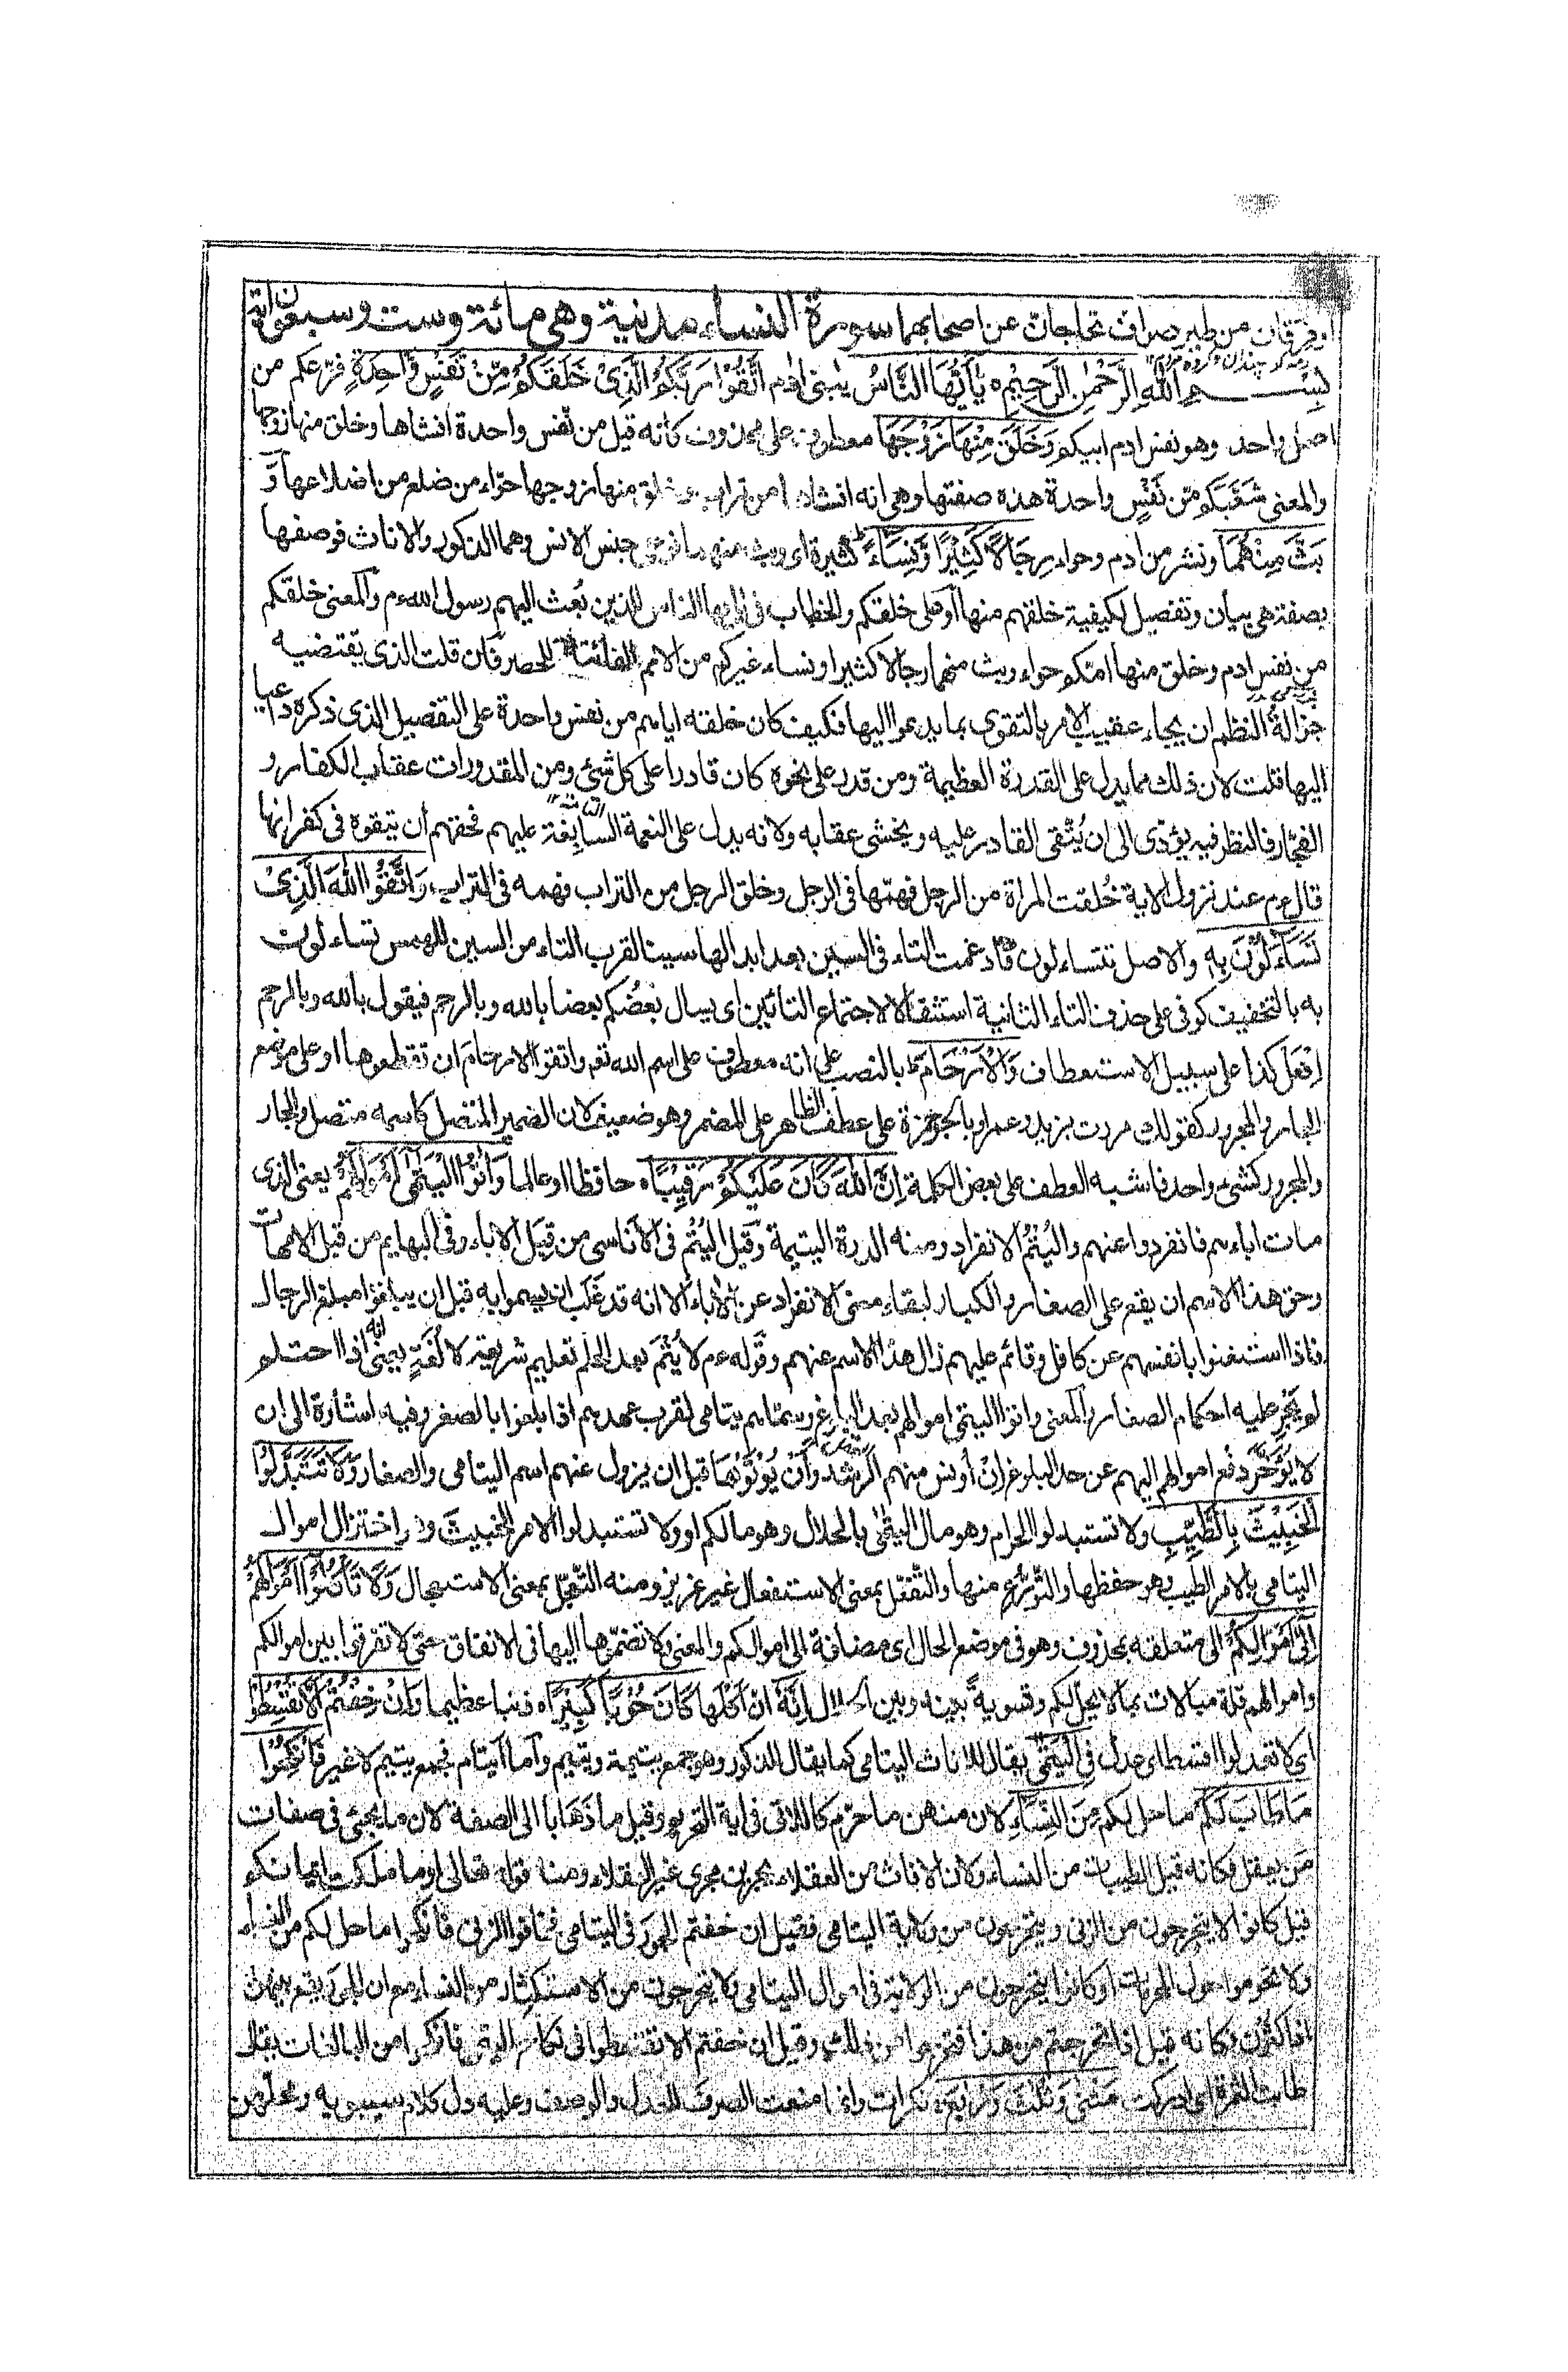 او فرقان من طير صواف تحاجان عن اصحابهما سورة النساء مدنية وهي مائة وست وسبعون اية
بسم الله الرحمن الرحيم يٰاَيُّهَا النَّاسُ يبنى ادم اتَّقُوْا رَبَّكُمُ الَّذِىْ خَلَقَكُمْ مِّنْ نَّفْسٍ وَّاحِدَةٍ فرّعكم من
اصل واحد وهو نفس ادم ابيكم وَّخَلَقَ مِنْهَا زَوْجَهَا معطوف على محذوف كانه قيل من نفس واحدة انشاها وخلق منها زوجها
والمعنى شعّبكم من نفس واحدة هذه صفتها وهى انه انشاها من تراب وخلق منها زوجها حوّاء من ضلع من اضلاعها وَ
بَثَّ مِنْهُمَا ونشر من ادم وحواء رِجَالًا كَثِيْرًا وَّنِسَاءً كثيرة اى وبث منهما نوعى جنس الانس وهما الذكور والاناث فوصفها
بصفة هى بيان وتفصيل لكيفية خلقهم منها او على خلقكم والخطاب فى يٰايها الناس للذين بُعث اليهم رسول الله عم والمعنى خلقكم
من نفس ادم وخلق منها امّكم حواء وبث منهما رجالا كثيرا ونساء غيركم من الامم الفائتة للحصر فان قلت الذى يقتضيه
جزالةُ النظم ان يجاء عقيب الامر بالتقوى بما يدعوا اليها فكيف كان خلقته اياهم من نفس واحدة على التفصيل الذى ذكره داعيا
اليها قلت لان ذلك مما يدل على القدرة العظيمة ومن قدر على نحوه كان قادرا على كل شئ ومن المقدورات عقاب الكفار و
الفجّار فالنظر فيه يؤدى الى ان يُتّقى القادر عليه ويخشى عقابه ولانه يدل على النعمة السابغة عليهم فحقهم أن يتقوه فى كفرانها
قال عم عند نزول الاية خُلقت المراة من الرجل فهمّها فى الرجل وخلق الرجل من التراب فهمه فى التراب وَاتَّقُوا اللهَ الَّذِىْ
تَسَاءَلُوْنَ بِهِ والاصل تتساءلون فادغمت التاء فى السين بعد ابدالها سينا لقرب التاء من السين للهمس تساءلون
به بالتخفيف كوفى على حذف التاء الثانية استثقالا لاجتماع التائين اى يسال بعضُكم بعضا بالله وبالرحم فيقول بالله وبالرحم
اِفعَل كذا على سبيل الاستعطاف وَالْاَرْحَامَ بالنصب على انه معطوف على اسم الله تعم واتقوا الارحامَ ان تقطعوها او على موضع
الجار والمجرور كقولك مررت بزيد وعمرا وبالجر حمزة على عطف الظاهر على المضمر وهو ضعيف لان الضمير المتصل كاسمه متصل والجار
والمجرور كشئ واحد فاشبه العطف على بعض الكلمة اِنَّ اللهَ كَانَ عَلَيْكُمْ رَقِيْبًا حافظا او عالما وَاٰتُوا الْيَتٰمٰى اَمْوَالَهُمْ يعنى الذى
مات اباءهم فانفردوا عنهم واليُتْمُ الانفراد ومنه الدرة اليتيمة وقيل اليُتْم فى الاناسى من قِبَل الاباء وفى البهايم من قبل الامهات
وحق هذا الاسم ان يقع على الصغار والكبار لبقاء معنى الانفراد عن الاباء الا انه قد غلب ان يسموا به قبل ان يبلغوا مبلغ الرجال
فاذا استغنوا بانفسهم عن كافل وقائم عليهم زال هذا الاسم عنهم وقوله عم لا يُتْمَ بعد الحلم تعليم شريعة لا لُغَةٍ يعنى انه اذا احتلم
لم يَجْرِ عليه احكام الصغار والمعنى واتوا اليتمى اموالهم بعد البلوغ وسمّاهم يتامى لقرب عهدهم اذا بلغوا بالصغر وفيه اشارة الى ان
لا يُؤَخَّر دفع اموالهم اليهم عن حد البلوغ اِنْ أونس منهم الرشد وأَنْ يُؤْتَوْها قبل ان يزول عنهم اسم اليتامى والصغار وَلَا تَتَبَدَّلُوا
الْخَبِيْثَ بِالطَّيِّبِ ولا تستبدلوا الحرام وهو مال اليتٰمٰى بالحلال وهو مالكم او ولا تستبدلوا الامر الخبيثَ وهو اختزال اموال
اليتامى بالامر الطيب وهو حفظها والتورّع منها والتفعّل بمعنى الاستفعال غير عزيز ومنه التعجّل بمعنى الاستعجال وَلَا تَأْكُلُوْا اَمْوَالَهُمْ
اِلٰى اَمْوَالِكُمْ الى متعلقه بمحذوف وهو فى موضع الحال اى مضافة الى اموالكم والمعنى ولا تضمّوها اليها فى الانفاق حتى لا تفرقوا بين اموالكم
واموالهم قلة مبالات بما لا يحل لكم وتسويةً بينه وبين الحلال اِنَّهُ ان اَكْلَها كَانَ حُوْبًا كَبِيْرًا ذنبا عظيما وَاِنْ خِفْتُمْ اَلَّا تُقْسِطُوْا
اى لا تعدلوا اقسط اى عدل فِى الْيَتٰمٰى يقال للاناث اليتامى كما يقال للذكور وهو جمع يتيمة ويتيم وأما ايتام فجمع يتيم لا غير فَانْكِحُوْا
مَا طَابَ لَكُمْ ما حل لكم مِنَ النِّسَاءِ لان منهن ما حرّم كاللاتى فى اية التحريم وقيل ما ذَهَابا الى الصفة لان ما يجئى فى صفات
مَن يعقل فكانه قيل الطيبات من النساء ولان الاناث من العقلاء يجرين مجرى غير العقلاء ومنه قوله تعالى او ما ملكت ايمانكم
قيل كانوا لا يتحرجون من الزنى ويتحرجون من ولاية اليتامى فقيل ان خفتم الجورَ فى اليتامى فخافوا الزنى فانكحوا ما حل لكم من النساء
ولا تحوموا حول المحرمات او كانوا يتحرجون من الولاية فى اموال اليتامى ولا يتحرجون من الاستكثار من النساء مع ان الجورَ يقع بينهن
اذا كثرن فكانه قيل اذا تحرجتم من هذا فتحرجوا من ذلك وقيل ان خفتم الا تقسطوا فى نكاح اليتمى فانكحوا من البالغات يقال
طابت الثمرة اى ادركت مَثْنٰى وَثُلٰثَ وَرُبٰعَ نكرات وانما منعت الصرفَ للعدل والوصف وعليه دل كلام سيبويه ومحلهن